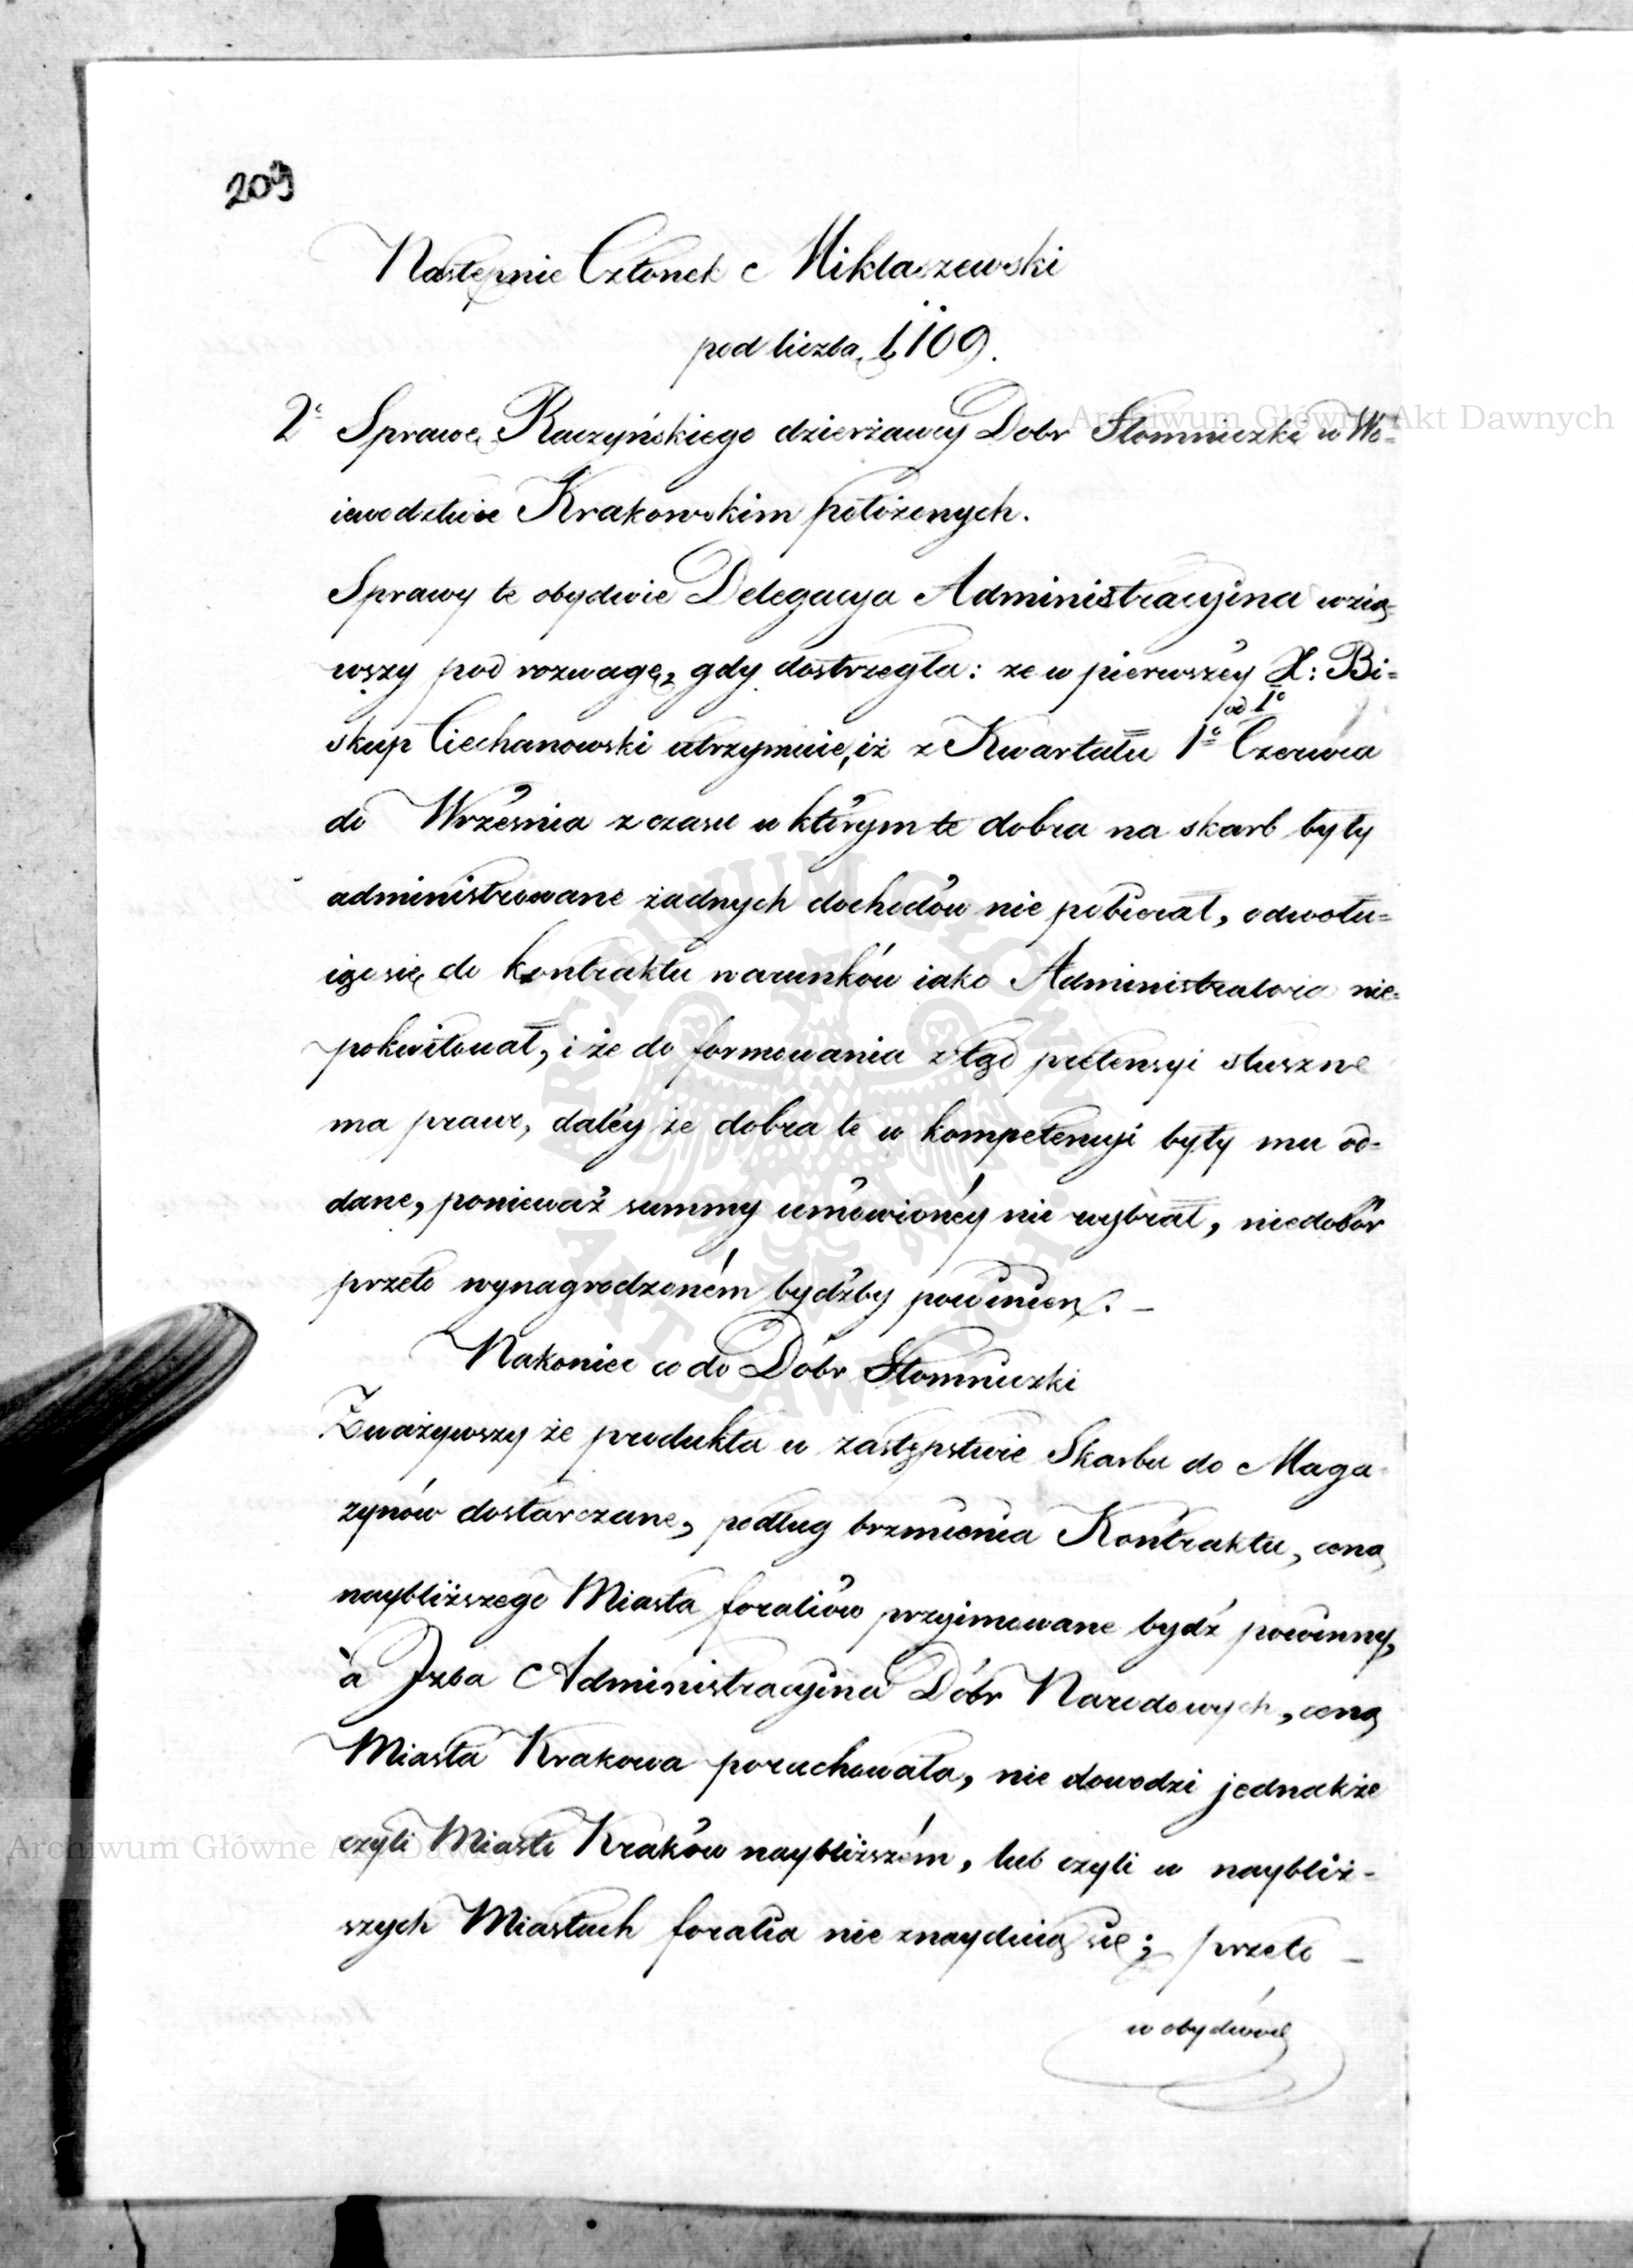 209
Następnie Członek Miklaszewski
pod liczbą 1109.
2° Sprawę Raczyńskiego dzierżawcy Dobr Słomniczki w Wo=
iewodztwie Krakowskim położonych.
Sprawy te obydwie Delegacya Administracyina wzią=
wszy pod rozwagę, gdy dostrzegła: że w pierwszéy X: Bi=
od 1°
skup Ciechanowski utrzymuie, iż z Kwartału 1° Czerwca
do Września z czasu w którym te dobra na skarb były
administrowane żadnych dochodów nie pobierał, odwołu=
iąc się do kontraktu warunków iako Administratora nie=
pokwitował, i że do formowania z tąd pretensyi słuszne
ma prawo, daléy że dobra te w kompetencyi były mu od=
dane, ponieważ summy umówionéy nie wybrał, niedobór
przeto wynagrodzoném bydźby powinien. _
Nakoniec co do Dóbr Słomniczki
Zważywszy że produkta w zastępstwie Skarbu do Maga=
zynów dostarczane, podług brzmienia Kontraktu, ceną
naybliższego Miasta foraliów przyimowane bydź powinny,
a Jzba Administracyina Dóbr Narodowych, ceną
Miasta Krakowa porachowała, nie dowodzi jednakże
czyli Miasto Kraków naybliższém, lub czyli w naybliż=
szych Miastach foralia nie znayduią się; przeto _
w obydwóch
Archiwum Główne Akt Dawnych
Archiwum Główne Akt Dawnych
ARCHIWUM GŁÓWNE AKT DAWNYCH